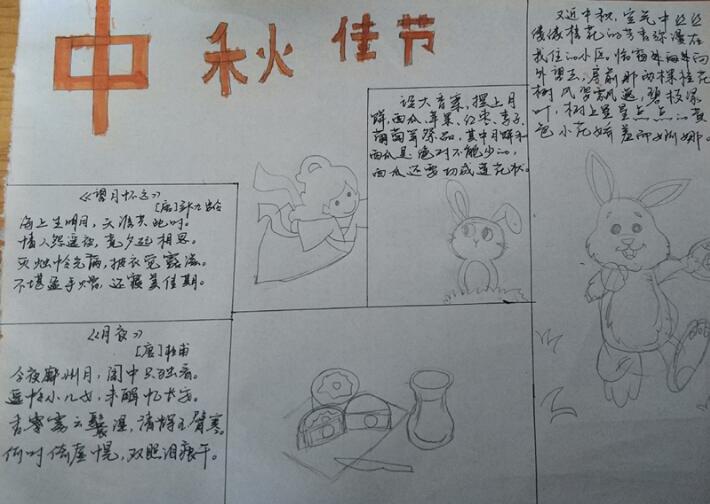 中秋佳节
《望月怀远》
[唐]张九龄
海上生明月，天涯共此时。
情人怨遥夜，竟夕起相思。
灭烛怜光满，披衣觉露滋。
不堪盈手赠，还寝梦佳期。
《月夜》
[唐]杜甫
今夜鄜州月，闺中只独看。
遥怜小儿女，未解忆长安。
香雾云鬟湿，清辉玉臂寒。
何时倚虚幌，双照泪痕干。
设大香案，摆上月
饼、西瓜、苹果、红枣、李子、
葡萄等祭品，其中月饼和
西瓜是绝对不能少的，
西瓜还要切成莲花状。
又近中秋，空气中丝丝
缕缕桂花的芳香弥漫在
我住的小区。
外望去，房前那两棵桂花
树风姿飘逸，碧枝绿
叶，树上星星点点的黄
色小花娇羞而婀娜。